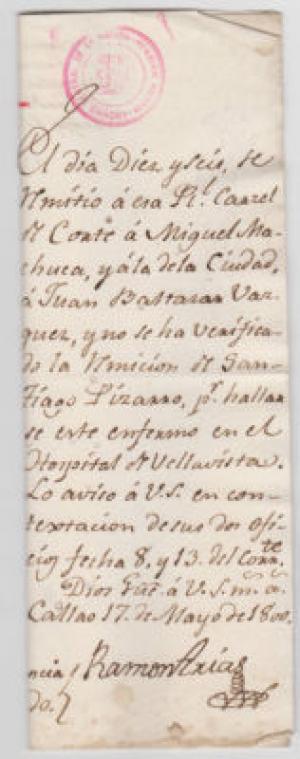 El dia Diez y seis, se
Rmitio á esa Rl. Carzel
de Corte á Miguel Ma-
chuca, y á la de la Ciudad,
á Juan Baltazar Vaz-
quez, y no se ha verifica-
do la Rmicion de San-
tiago Pizarro, pr. hallar
se este enfermo en el
Hospital de Vellavista.
Lo aviso á V.S. en con-
textacion de sus dos ofi-
cios fecha 8, y 13. del Corrte.
Dios gue. á V.S. ms. as.
Callao 17. de Mayo de 1800.
Ramon Arias
ncia
do.